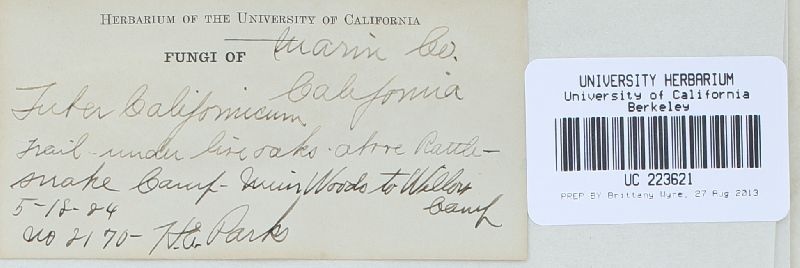 HERBARIUM OF THE UNIVERSITY OF CALIFORNIA
FUNGI OF Marin Co.
California
Tuber Californicum
Trail - under live oaks - above Rattle-
snake Camp - Muir Woods to Willow
Camp
5-18-24
No 2170 - H.E. Parks
UNIVERSITY HERBARIUM
University of California
Berkeley
UC 223621
PREP BY Brittany Wyre, 27 Aug 2013